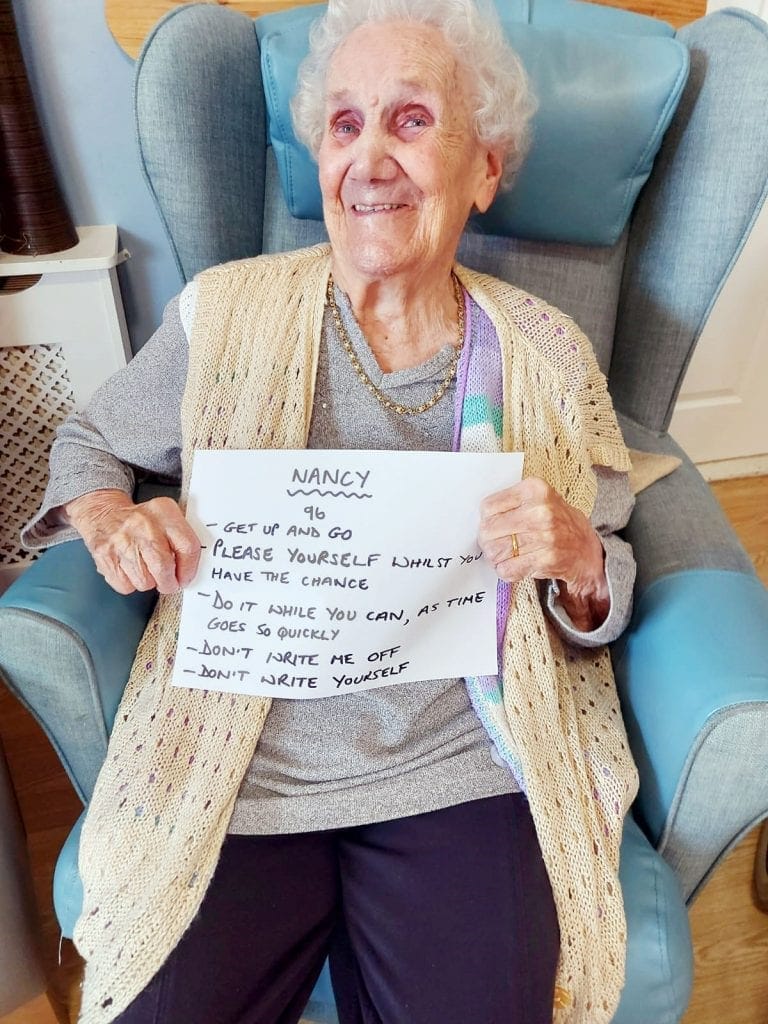 NANCY
96
- GET UP AND GO
- PLEASE YOURSELF WHILST YOU
HAVE THE CHANCE
- DO IT WHILE YOU CAN, AS TIME
GOES SO QUICKLY
- DON'T WRITE ME OFF
- DON'T WRITE YOURSELF